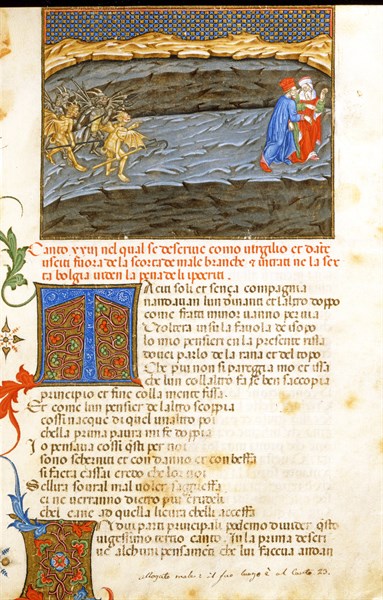 Canto xxiii nel qual se descriue como uirgilio et dāte
usciti fuora de la scorta de male branche & intrati ne la sex
ta bolgia uiden la pena deli ipocriti.
Taciti soli et sença compagnia
nandauan lun dinanti et laltro dopo
come frati minor uanno per uia
Volterā insu la fauola de isopo
lo mio pensier in la presente rissa
doue i parlo de la rana et del topo
Che piu non si pareggia mo et issa
che lun collaltro fa se ben saccoppia
principio et fine colla mente fissa.
Et come lun pensier de laltro scoppia
cossi nacque di quel unaltro poi
che la prima paura mi fe doppia
Io pensaua cossi q̄sti per noi
sono scherniti et con danno et con beffa
si facta cassai credo che lor noi
Se lira soural mal uoler saggueffa
ei ne uerranno dietro piu crudeli
chel cane ad quella lieura chelli acceffa
In dui parti principali podemo diuider q̄sto
uigessimo tertio canto. In la prima descri
ue alchuni pensamēti che lui faceua andan
allogato male: il suo luogo è al Canto 23.